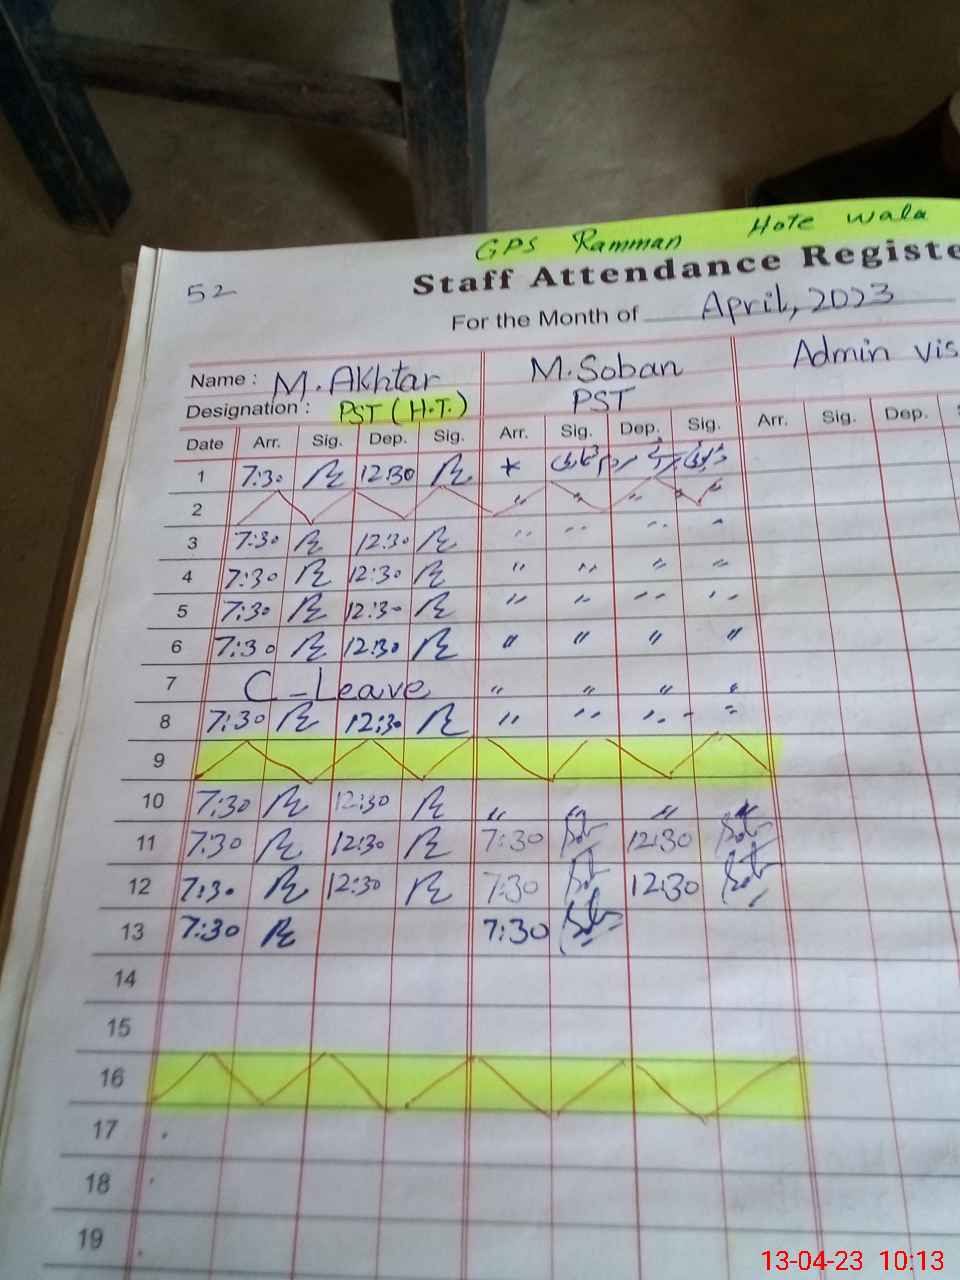 GPS Ramman Hote Wala
52 Staff Attendance Registe
For the Month of April, 2023
Name : M. Akhtar M. Soban Admin vis
Designation : PST (H.T.) PST
Date Arr. Sig. Dep. Sig. Arr. Sig. Dep. Sig. Arr. Sig. Dep.
1 7:30 12:30 *
2 " " " "
3 7:30 12:30 " " " "
4 7:30 12:30 " " " "
5 7:30 12:30 " " " "
6 7:30 12:30 " " " "
7 C-Leave " " " "
8 7:30 12:30 " " " "
9
10 7:30 12:30 " " " "
11 7:30 12:30 7:30 12:30
12 7:30 12:30 7:30 12:30
13 7:30 7:30
14
15
16
17
18
19
13-04-23 10:13